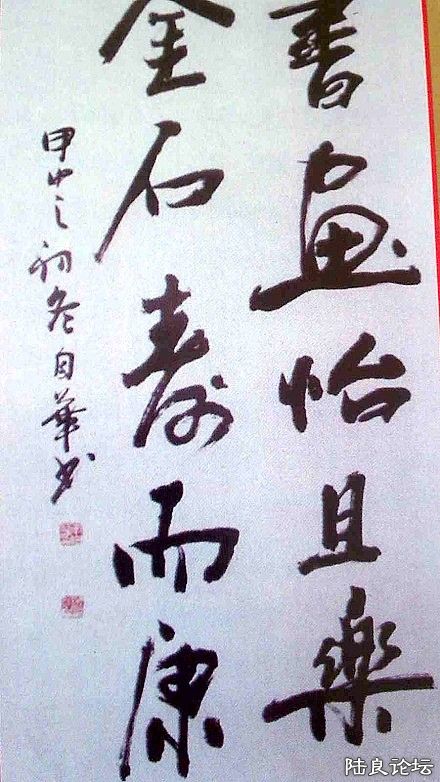 書畫怡且樂
金石壽而康
甲申之初冬自華书
陆良论坛